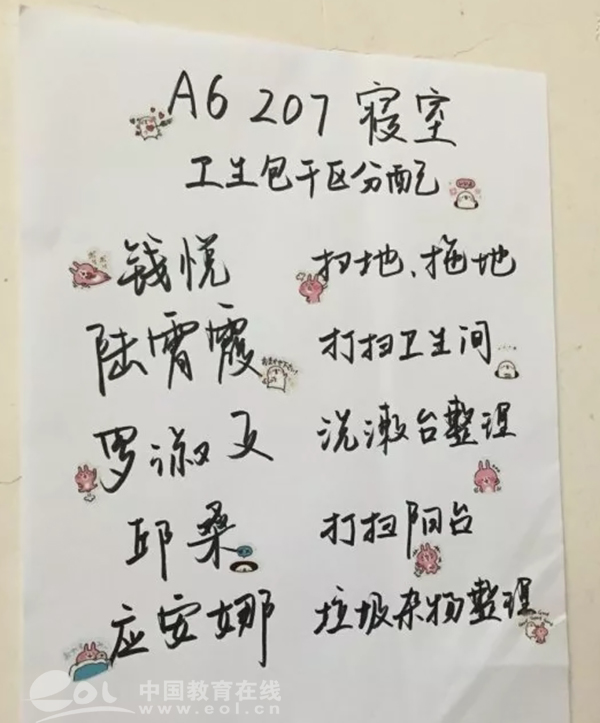 A6 207 寝室
卫生包干区分配
钱悦 扫地、拖地
陆霄霞 打扫卫生间
罗淑文 洗漱台整理
邱桑 打扫阳台
应安娜 垃圾杂物整理
eol 中国教育在线
www.eol.cn